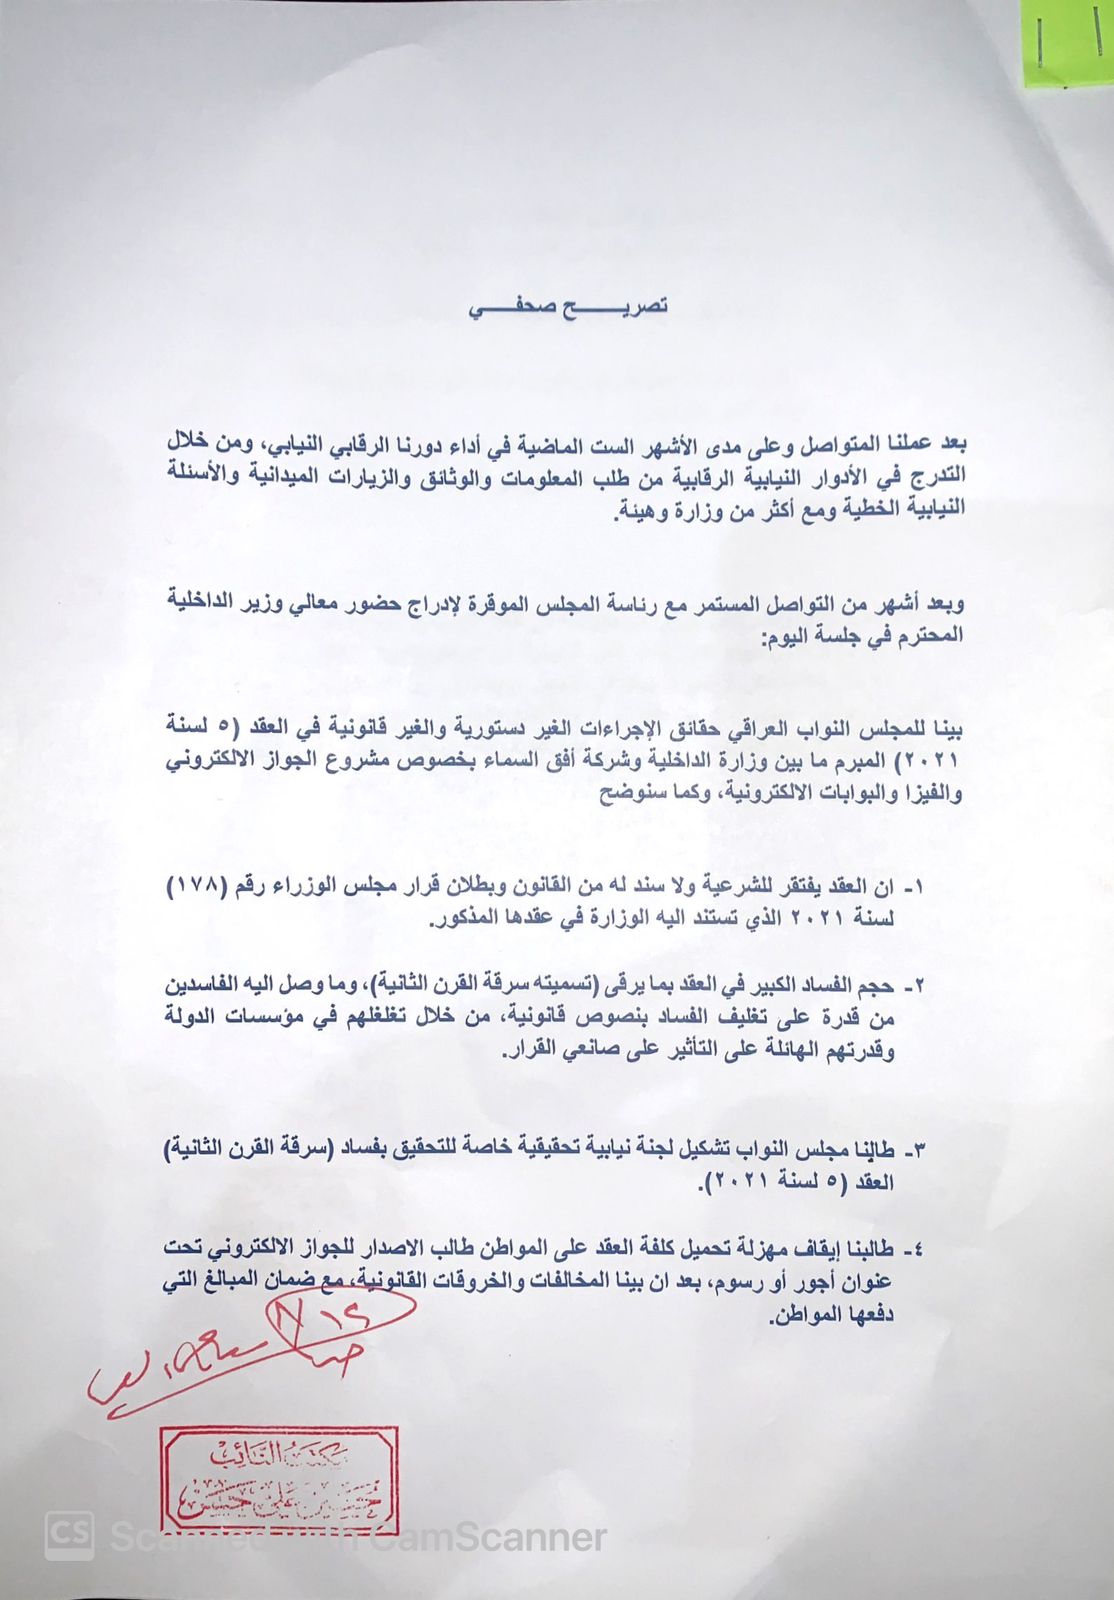 تصريـــــــح صحفـــــي
بعد عملنا المتواصل وعلى مدى الأشهر الست الماضية في أداء دورنا الرقابي النيابي، ومن خلال
التدرج في الأدوار النيابية الرقابية من طلب المعلومات والوثائق والزيارات الميدانية والأسئلة
النيابية الخطية ومع أكثر من وزارة وهيئة.
وبعد أشهر من التواصل المستمر مع رئاسة المجلس الموقرة لإدراج حضور معالي وزير الداخلية
المحترم في جلسة اليوم:
بينا للمجلس النواب العراقي حقائق الإجراءات الغير دستورية والغير قانونية في العقد (٥ لسنة
٢٠٢١) المبرم ما بين وزارة الداخلية وشركة أفق السماء بخصوص مشروع الجواز الالكتروني
والفيزا والبوابات الالكترونية، وكما سنوضح
١- ان العقد يفتقر للشرعية ولا سند له من القانون وبطلان قرار مجلس الوزراء رقم (١٧٨)
لسنة ٢٠٢١ الذي تستند اليه الوزارة في عقدها المذكور.
٢- حجم الفساد الكبير في العقد بما يرقى (تسميته سرقة القرن الثانية)، وما وصل اليه الفاسدين
من قدرة على تغليف الفساد بنصوص قانونية، من خلال تغلغلهم في مؤسسات الدولة
وقدرتهم الهائلة على التأثير على صانعي القرار.
٣- طالبنا مجلس النواب تشكيل لجنة نيابية تحقيقية خاصة للتحقيق بفساد (سرقة القرن الثانية)
العقد (٥ لسنة ٢٠٢١).
٤- طالبنا إيقاف مهزلة تحميل كلفة العقد على المواطن طالب الاصدار للجواز الالكتروني تحت
عنوان أجور أو رسوم، بعد ان بينا المخالفات والخروقات القانونية، مع ضمان المبالغ التي
دفعها المواطن.
مكتب النائب
CS Scanned with CamScanner